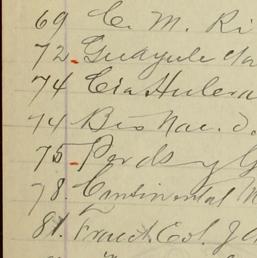 69 C. M. Ri
72 Guayule
74 Cia Hulera
74 Bco Nac. d
75 Perds y G
78. Continental M
81. Fracc. Col.